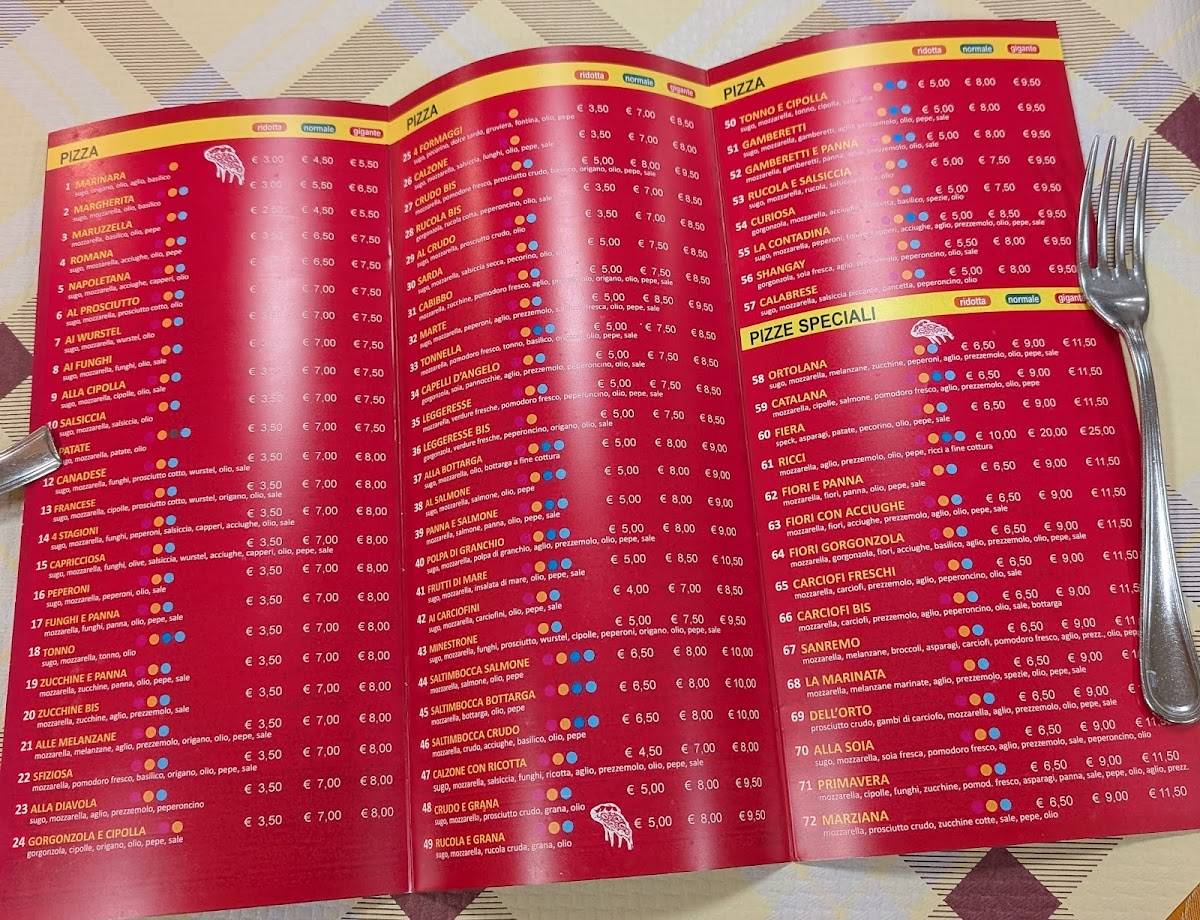 PIZZA ridotta normale gigante
1 MARINARA € 3,00 € 4,50 € 5,50
sugo, origano, olio, aglio, basilico
2 MARGHERITA € 3,00 € 5,50 € 6,50
sugo, mozzarella, olio, basilico
3 MARUZZELLA € 2,50 € 4,50 € 5,50
mozzarella, basilico, olio, pepe
4 ROMANA € 3,50 € 6,50 € 7,50
sugo, mozzarella, acciughe, olio, pepe
5 NAPOLETANA € 3,50 € 6,50 € 7,50
sugo, mozzarella, acciughe, capperi, olio
6 AL PROSCIUTTO € 3,50 € 7,00 € 7,50
sugo, mozzarella, prosciutto cotto, olio
7 AI WURSTEL € 3,50 € 7,00 € 7,50
sugo, mozzarella, wurstel, olio
8 AI FUNGHI € 3,50 € 7,00 € 7,50
sugo, mozzarella, funghi, olio, sale
9 ALLA CIPOLLA € 3,50 € 7,00 € 7,50
sugo, mozzarella, cipolle, olio, sale
10 SALSICCIA € 3,50 € 7,00 € 7,50
sugo, mozzarella, salsiccia, olio
PATATE € 3,50 € 7,00 € 7,50
mozzarella, patate, olio
12 CANADESE € 3,50 € 7,00 € 8,00
sugo, mozzarella, funghi, prosciutto cotto, wurstel, olio, sale
13 FRANCESE € 3,50 € 7,00 € 8,00
sugo, mozzarella, cipolle, prosciutto cotto, wurstel, origano, olio, sale
14 4 STAGIONI € 3,50 € 7,00 € 8,00
sugo, mozzarella, funghi, peperoni, salsiccia, capperi, acciughe, olio, sale
15 CAPRICCIOSA € 3,50 € 7,00 € 8,00
sugo, mozzarella, funghi, olive, salsiccia, wurstel, acciughe, capperi, olio, pepe, sale
16 PEPERONI € 3,50 € 7,00 € 8,00
sugo, mozzarella, peperoni, olio, sale
17 FUNGHI E PANNA € 3,50 € 7,00 € 8,00
mozzarella, funghi, panna, olio, pepe, sale
18 TONNO € 3,50 € 7,00 € 8,00
sugo, mozzarella, tonno, olio
19 ZUCCHINE E PANNA € 3,50 € 7,00 € 8,00
mozzarella, zucchine, panna, olio, pepe, sale
20 ZUCCHINE BIS € 3,50 € 7,00 € 8,00
mozzarella, zucchine, aglio, prezzemolo, sale
21 ALLE MELANZANE € 3,50 € 7,00 € 8,00
mozzarella, melanzane, aglio, prezzemolo, origano, olio, pepe, sale
22 SFIZIOSA € 3,50 € 7,00 € 8,00
mozzarella, pomodoro fresco, basilico, origano, olio, pepe, sale
23 ALLA DIAVOLA € 3,50 € 7,00 € 8,00
sugo, mozzarella, aglio, prezzemolo, peperoncino
24 GORGONZOLA E CIPOLLA € 3,50 € 7,00 € 8,00
gorgonzola, cipolle, origano, olio, pepe, sale
PIZZA ridotta normale gigante
25 4 FORMAGGI € 3,50 € 7,00 € 8,50
sugo, pecorino, dolce sardo, gruviera, fontina, olio, pepe
26 CALZONE € 3,50 € 7,00 € 8,00
sugo, mozzarella, salsiccia, funghi, olio, pepe, sale
27 CRUDO BIS € 5,00 € 8,00 € 9,50
mozzarella, pomodoro fresco, prosciutto crudo, basilico, origano, olio, pepe, sale
28 RUCOLA BIS € 3,50 € 7,00 € 8,50
gorgonzola, rucola cotta, peperoncino, olio, sale
29 AL CRUDO € 3,50 € 7,00 € 8,50
sugo, mozzarella, prosciutto crudo, olio
30 SARDA € 5,00 € 7,50 € 8,50
sugo, mozzarella, salsiccia secca, pecorino, olio
31 CABIBBO € 5,00 € 7,50 € 8,50
mozzarella, zucchine, pomodoro fresco, aglio, prezzemolo, origano, olio, pepe, sale
32 MARTE € 5,00 € 8,00 € 9,50
mozzarella, peperoni, aglio, prezzemolo, olio, pepe, sale
33 TONNELLA € 5,00 € 7,50 € 8,50
mozzarella, pomodoro fresco, tonno, basilico, olio, pepe, sale
34 CAPELLI D'ANGELO € 5,00 € 7,50 € 8,50
gorgonzola, soia, pannocchie, aglio, prezzemolo, peperoncino, olio, sale
35 LEGGERESSE € 5,00 € 7,50 € 8,50
mozzarella, verdure fresche, pomodoro fresco, peperoncino, olio, pepe, sale
36 LEGGERESSE BIS € 5,00 € 7,50 € 8,50
gorgonzola, verdure fresche, peperoncino, origano, olio, sale
37 ALLA BOTTARGA € 5,00 € 8,00 € 9,00
mozzarella, olio, bottarga a fine cottura
38 AL SALMONE € 5,00 € 8,00 € 9,00
mozzarella, salmone, olio, pepe
39 PANNA E SALMONE € 5,00 € 8,00 € 9,00
mozzarella, salmone, panna, olio, pepe, sale
40 POLPA DI GRANCHIO € 5,00 € 8,00 € 9,00
mozzarella, polpa di granchio, aglio, prezzemolo, olio, pepe, sale
41 FRUTTI DI MARE € 5,00 € 8,50 € 10,50
mozzarella, insalata di mare, olio, pepe, sale
42 AI CARCIOFINI € 4,00 € 7,00 € 8,50
mozzarella, carciofini, olio, pepe, sale
43 MINESTRONE € 5,00 € 7,50 € 9,50
sugo, mozzarella, funghi, prosciutto, wurstel, cipolle, peperoni, origano, olio, pepe, sale
44 SALTIMBOCCA SALMONE € 6,50 € 8,00 € 10,00
mozzarella, salmone, olio, pepe
45 SALTIMBOCCA BOTTARGA € 6,50 € 8,00 € 10,00
mozzarella, bottarga, olio, pepe
46 SALTIMBOCCA CRUDO € 6,50 € 8,00 € 10,00
mozzarella, crudo, acciughe, basilico, olio, pepe
47 CALZONE CON RICOTTA € 4,50 € 7,00 € 8,00
sugo, mozzarella, salsiccia, funghi, ricotta, aglio, prezzemolo, olio, pepe, sale
48 CRUDO E GRANA € 5,00 € 8,00 € 9,50
sugo, mozzarella, prosciutto crudo, grana, olio
49 RUCOLA E GRANA € 5,00 € 8,00 € 9,50
sugo, mozzarella, rucola cruda, grana, olio
PIZZA ridotta normale gigante
50 TONNO E CIPOLLA € 5,00 € 8,00 € 9,50
sugo, mozzarella, tonno, cipolla,
51 GAMBERETTI € 5,00 € 8,00 € 9,50
sugo, mozzarella, gamberetti, aglio, prezzemolo, olio, pepe, sale
52 GAMBERETTI E PANNA € 5,00 € 8,00 € 9,50
mozzarella, gamberetti, panna, prezzemolo, olio, sale
53 RUCOLA E SALSICCIA € 5,00 € 7,50 € 9,50
sugo, mozzarella, rucola, salsiccia, olio
54 CURIOSA € 5,00 € 7,50 € 9,50
gorgonzola, mozzarella, acciughe, basilico, spezie, olio
55 LA CONTADINA € 5,00 € 8,50 € 9,50
mozzarella, peperoni, capperi, acciughe, aglio, prezzemolo, olio, pepe, sale
56 SHANGAY € 5,50 € 8,00 € 9,50
gorgonzola, soia fresca, aglio, prezzemolo, peperoncino, olio, sale
57 CALABRESE € 5,00 € 8,00 € 9,50
sugo, mozzarella, salsiccia piccante, pancetta, peperoncino, olio
PIZZE SPECIALI ridotta normale gigante
58 ORTOLANA € 6,50 € 9,00 € 11,50
sugo, mozzarella, melanzane, zucchine, peperoni, aglio, prezzemolo, olio, pepe, sale
59 CATALANA € 6,50 € 9,00 € 11,50
mozzarella, cipolle, salmone, pomodoro fresco, aglio, prezzemolo, olio, pepe
60 FIERA € 6,50 € 9,00 € 11,50
speck, asparagi, patate, pecorino, olio, pepe, sale
61 RICCI € 10,00 € 20,00 € 25,00
mozzarella, aglio, prezzemolo, olio, pepe, ricci a fine cottura
62 FIORI E PANNA € 6,50 € 9,00 € 11,50
mozzarella, fiori, panna, olio, pepe, sale
63 FIORI CON ACCIUGHE € 6,50 € 9,00 € 11,50
mozzarella, fiori, acciughe, prezzemolo, aglio, olio, pepe, sale
64 FIORI GORGONZOLA € 6,50 € 9,00 € 11,50
mozzarella, gorgonzola, fiori, acciughe, basilico, aglio, prezzemolo, olio, pepe, sale
65 CARCIOFI FRESCHI € 6,50 € 9,00 € 11,50
mozzarella, carciofi, prezzemolo, aglio, peperoncino, olio, sale
66 CARCIOFI BIS € 6,50 € 9,00 € 11,5
mozzarella, carciofi, prezzemolo, aglio, peperoncino, olio, sale, bottarga
67 SANREMO € 6,50 € 9,00 € 11
mozzarella, melanzane, broccoli, asparagi, carciofi, pomodoro fresco, aglio, prezz., olio, pep
68 LA MARINATA € 6,50 € 9,00 € 1
mozzarella, melanzane marinate, aglio, prezzemolo, spezie, olio, pepe, sale
69 DELL'ORTO € 6,50 € 9,00 €
prosciutto crudo, gambi di carciofo, mozzarella, aglio, prezzemolo, olio, pepe, sale
70 ALLA SOIA € 6,50 € 9,00 € 11,50
sugo, mozzarella, soia fresca, pomodoro fresco, aglio, prezzemolo, sale, peperoncino, olio
71 PRIMAVERA € 6,50 € 9,00 € 11,50
mozzarella, cipolle, funghi, zucchine, pomod. fresco, asparagi, panna, sale, pepe, olio, aglio, prezz.
72 MARZIANA € 6,50 € 9,00 € 11,50
mozzarella, prosciutto crudo, zucchine cotte, sale, pepe, olio